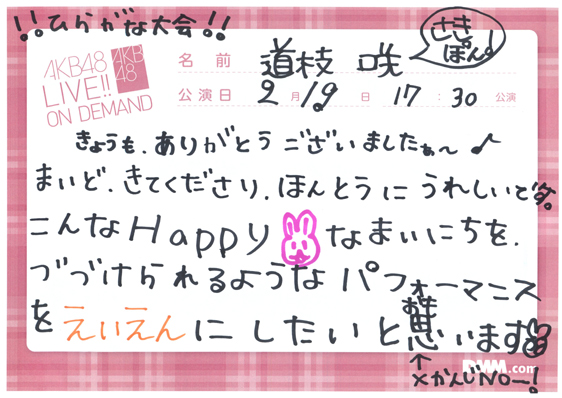 !!ひらがな大会!!
AKB48
LIVE!!
ON DEMAND
AKB
48
名前 道枝 咲
さき
ぽん!
公演日 2月19日 17:30公演
きょうも、ありがとうございましたぁ〜♪
まいど、きてくださり、ほんとうにうれしいです。
こんなHappyなまいにちを、
づづけられるようなパフォーマニス
をえいえんにしたいと思います
おも
↑
×かんじNOー!
DMM.com